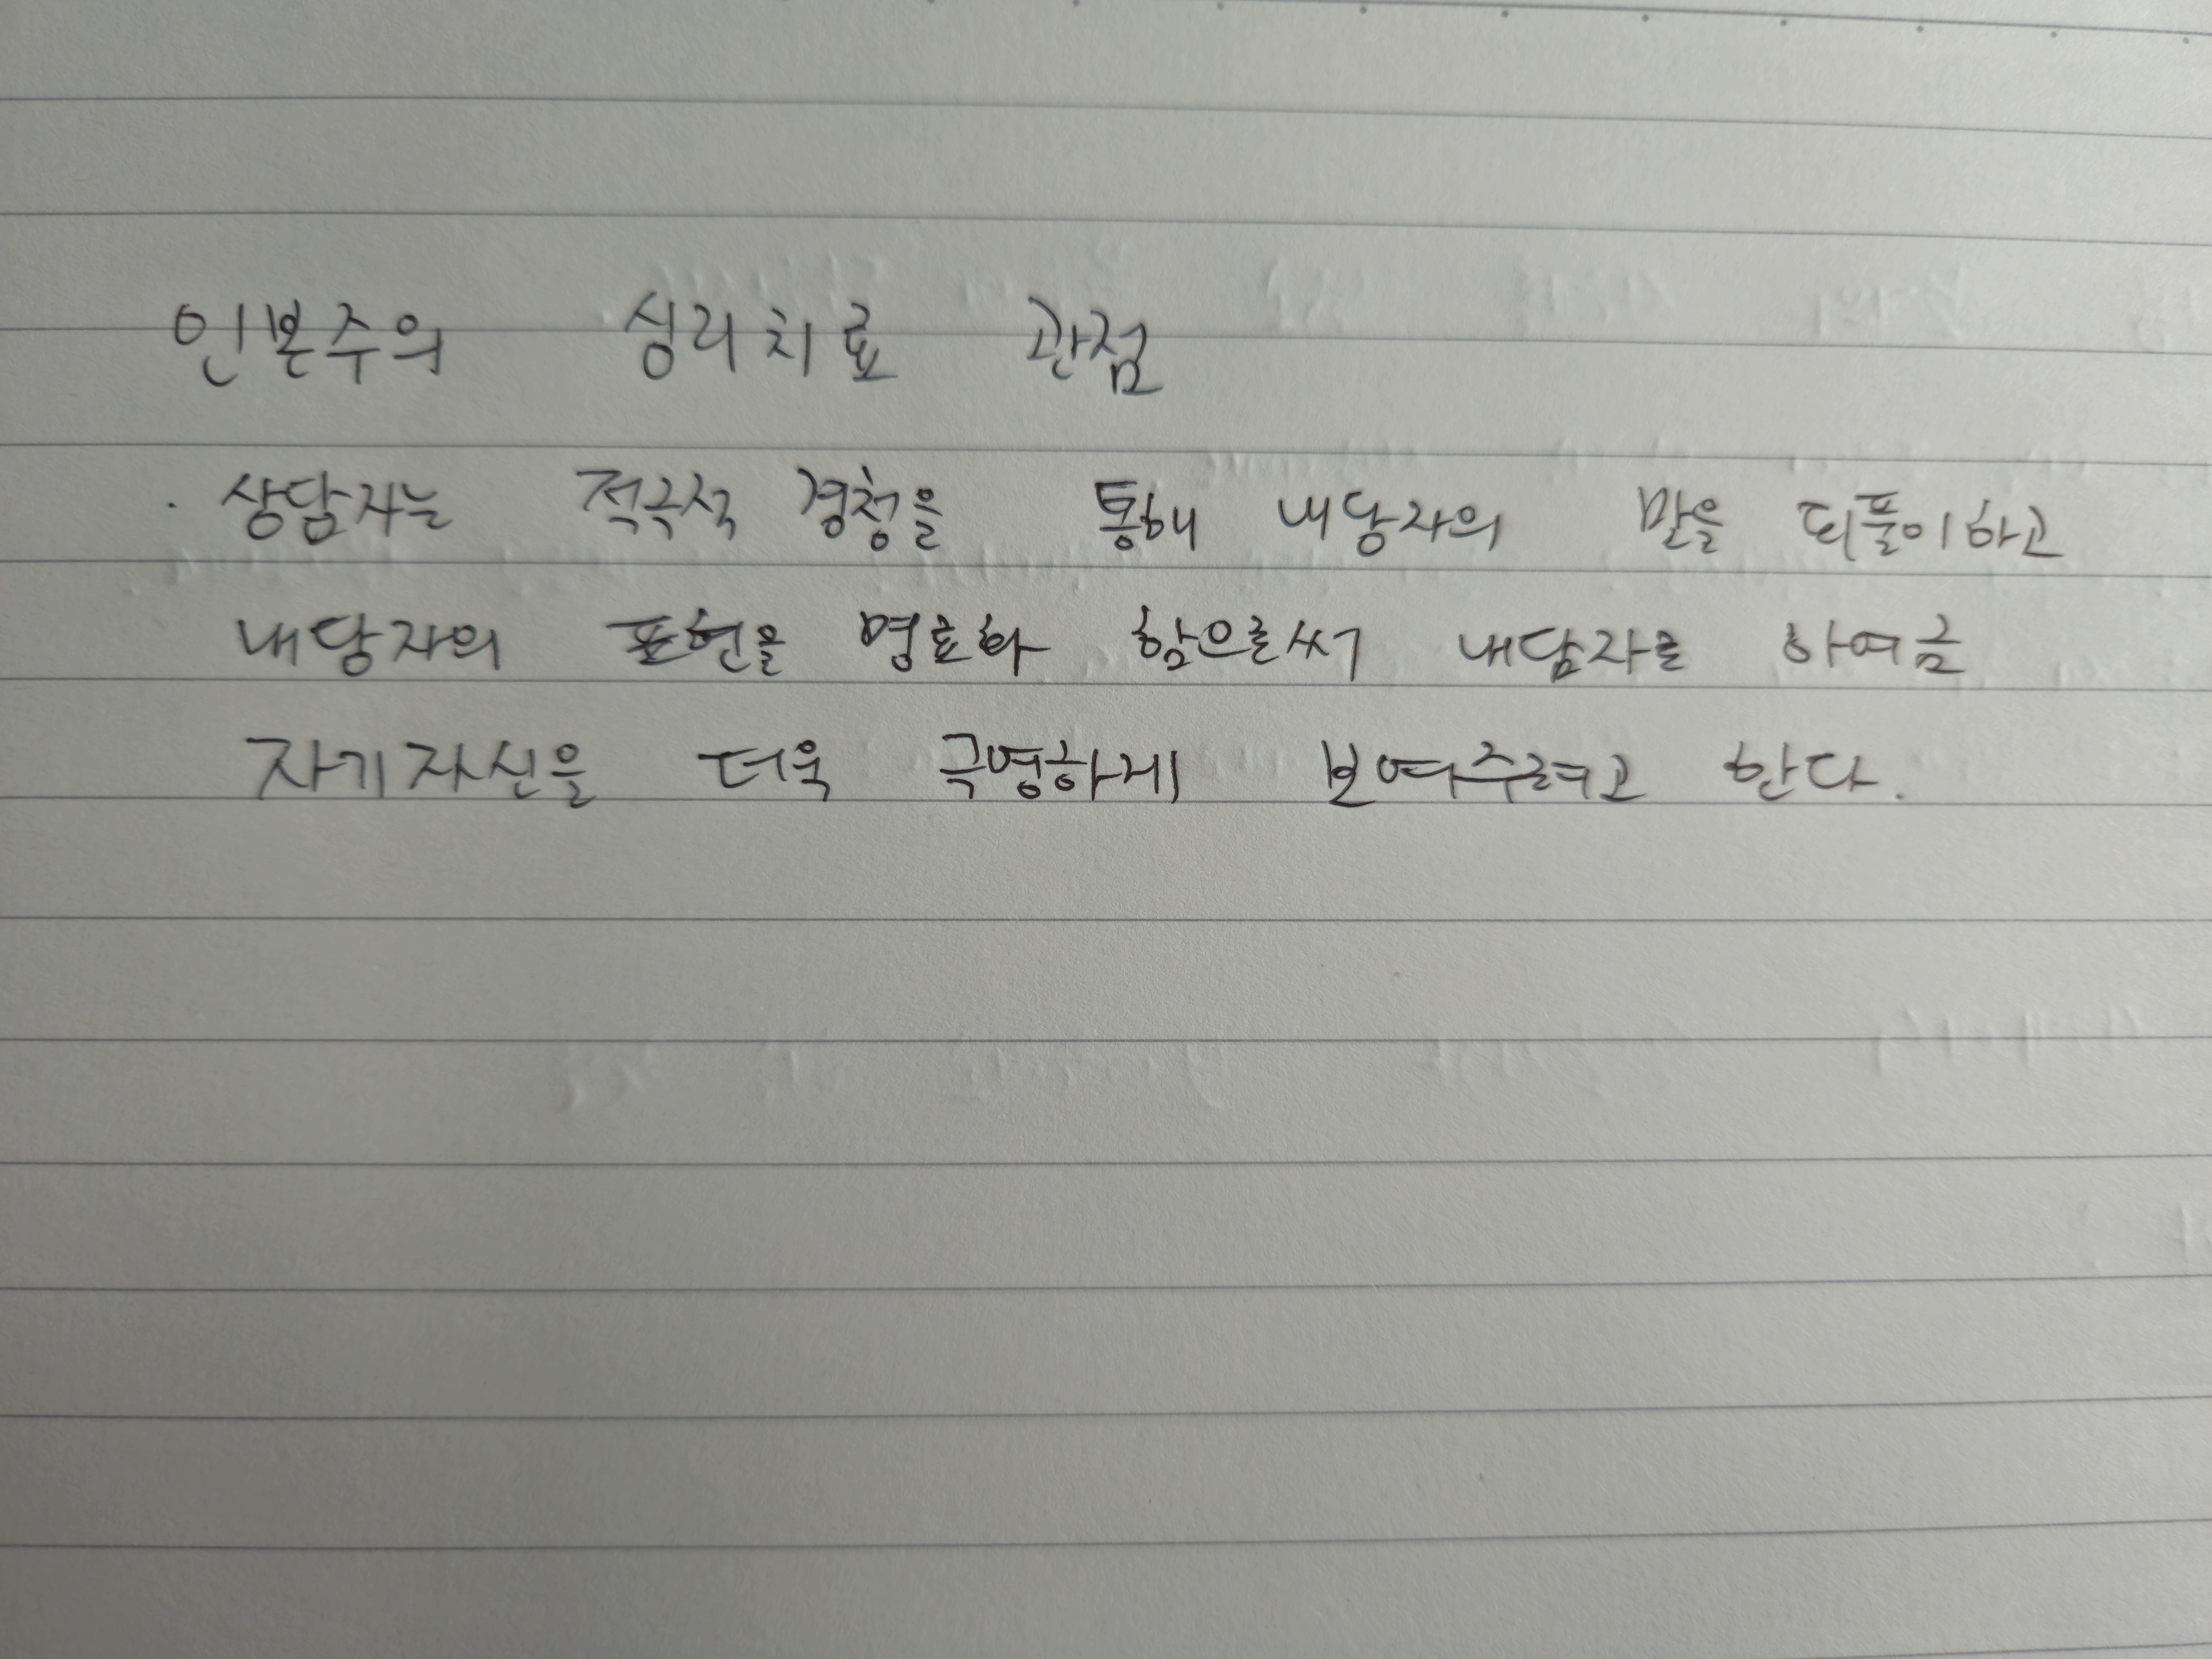 인본주의 심리치료 관점
· 상담자는 적극적 경청을 통해 내담자의 말을 되풀이하고
내담자의 표현을 명료화 함으로써 내담자로 하여금
자기자신을 더욱 극명하게 보여주려고 한다.